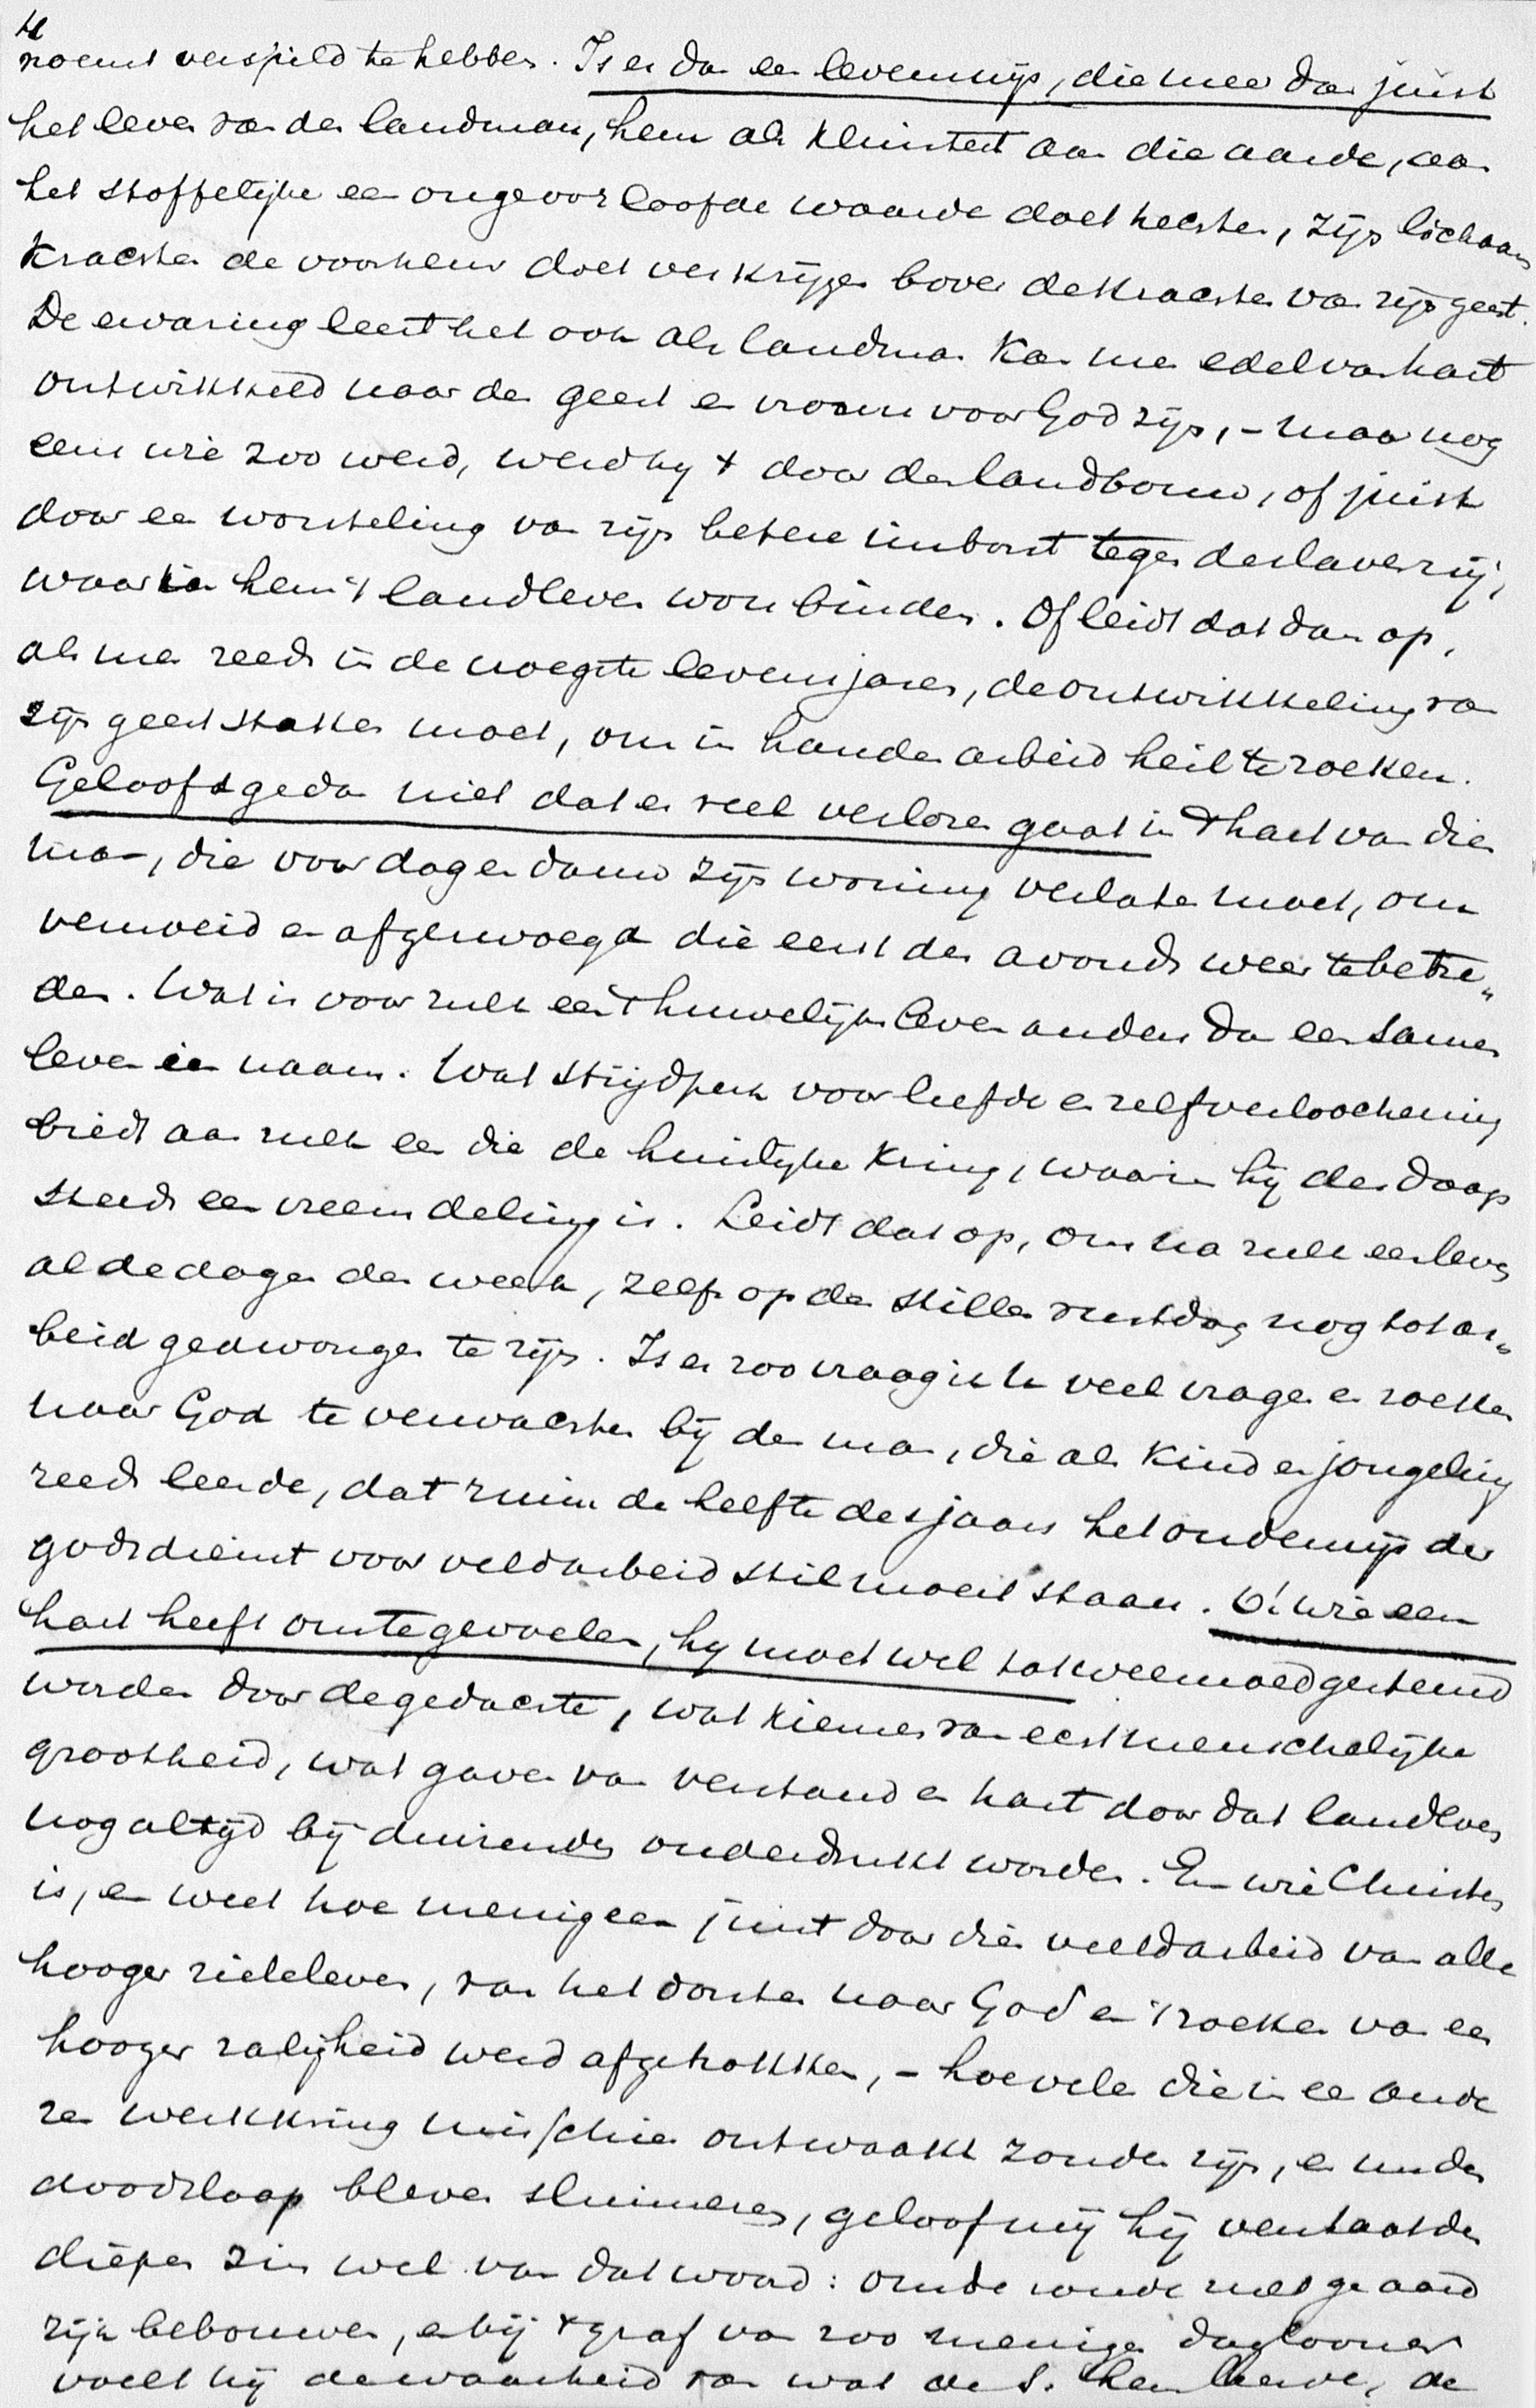 4
noemt verspild te hebben. Is er dan een levenswijs, die meer dan juist
het leven van den landman, hem als kluistert aan die aarde, aan
het stoffelijke een ongeoorloofde waarde doet hechten, zijn lichaams
krachten de voorkeur doet verkrijgen boven de krachten van zijn geest.
De ervaring leert het ook als landman kan men edel van hart
ontwikkeld naar den geest en vroom voor God zijn, - maar nog
eens wie zoo werd, werd hij 't door den landbouw, of juist
door een worsteling van zijn betere inborst tegen de slavernij,
waarin hem 't landleven wou binden. Of leidt dat dan op,
als men reeds in de vroegste levensjaren, de ontwikkeling van
zijn geest staken moet, om in handen arbeid heil te zoeken.
Gelooft ge dan niet dat er veel verloren gaat in 't hart van dien
man, die voor dag en dauw zijn woning verlaten moet, om
vermoeid en afgezwoegd die eerst des avonds weer te betre„
den. Wat is voor zulk een 't huwelijksleven anders dan een samen
leven in naam. Wat strijdperk voor liefde en zelfverloochening
biedt aan zulk een die de huislijke kring, waarin hij den daags
steeds een vreemdeling is. Leidt dat op, om na zulk een leven
al de dagen der week, zelfs op den stillen rustdag nog tot ar„
beid gedwongen te zijn. Is er zoo vraag ik u veel vragen en zoeken
naar God te verwachten bij den man, die als kind en jongeling
reeds leerde, dat ruim de helft des jaars het onderwijs der
godsdienst voor veldarbeid stil moest staan. O! wie een
hart heeft om te gevoelen, hij moet wel tot weemoed gestemd
worden door de gedachte, wat kiemen van echt menschelijke
grootheid, wat gaven van verstand en hart door dat landleven
nog altijd bij duizenden onderdrukt worden. En wie Christen
is, en weet hoe menigeen juist door die veldarbeid van alle
hooger zieleleven, van het dorsten naar God en 't zoeken van een
hooger zaligheid werd afgetrokken, - hoevelen die in een ande
ren werkkring misschien ontwaakt zouden zijn, en in den
doodslaap bleven sluimeren, geloof mij hij verstaat den
diepen zin wel van dat woord: om de zonde zult ge aard
rijk bebouwen, en bij 't graf van zoo menigen daglooner
voelt hij de waarheid van wat de S. hem leerde, de